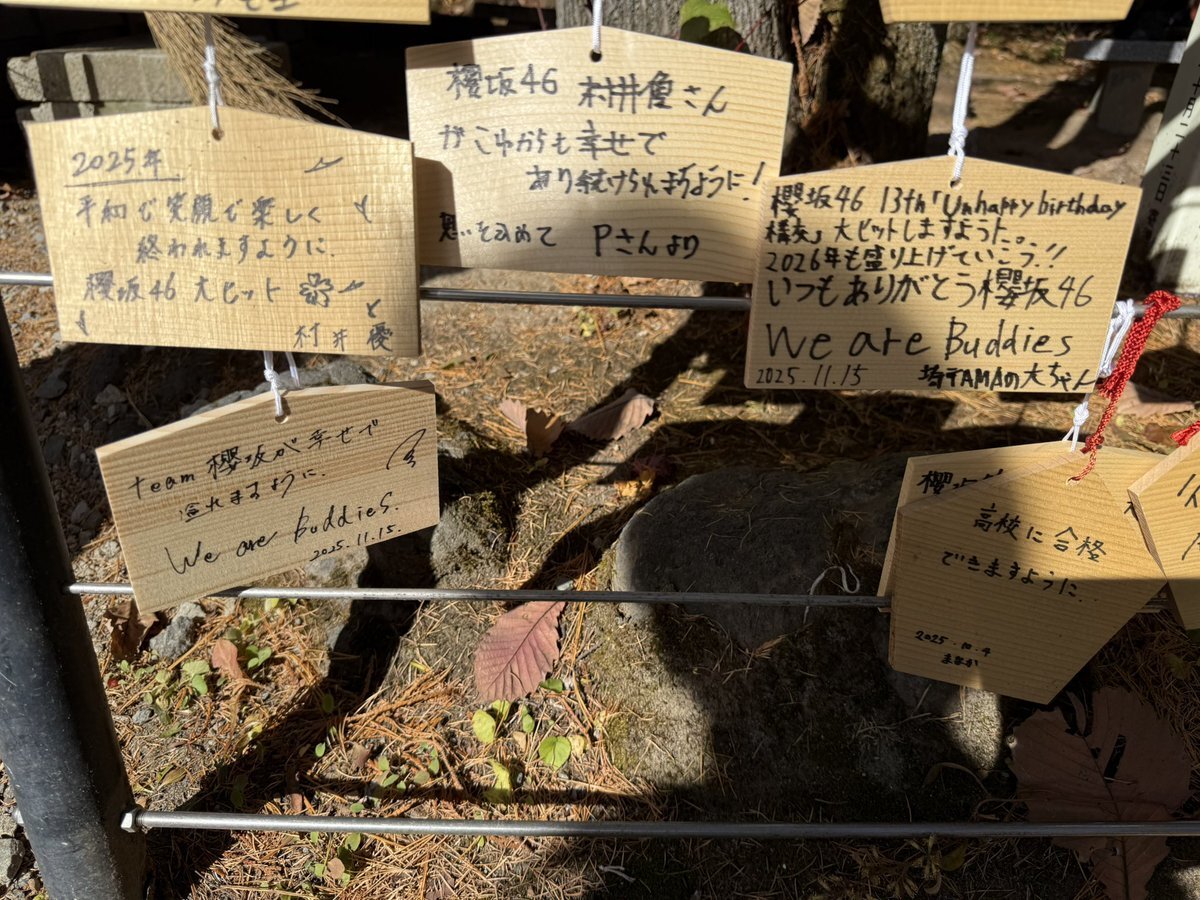 2025年
平和で笑顔で楽しく
終われますように.
櫻坂46 大ヒット
村井優
櫻坂46 村井優さん
がこれからも幸せで
あり続けられますように!
思いを込めて Pさんより
櫻坂46 13th「Unhappy birthday
構文」大ヒットしますように。
2026年も盛り上げていこう!!
いつもありがとう櫻坂46
We are Buddies
2025.11.15
team 櫻坂が幸せで
溢れますように.
We are Buddies.
2025.11.15.
櫻坂
高校に合格
できますように..
2025.10.4
まなか